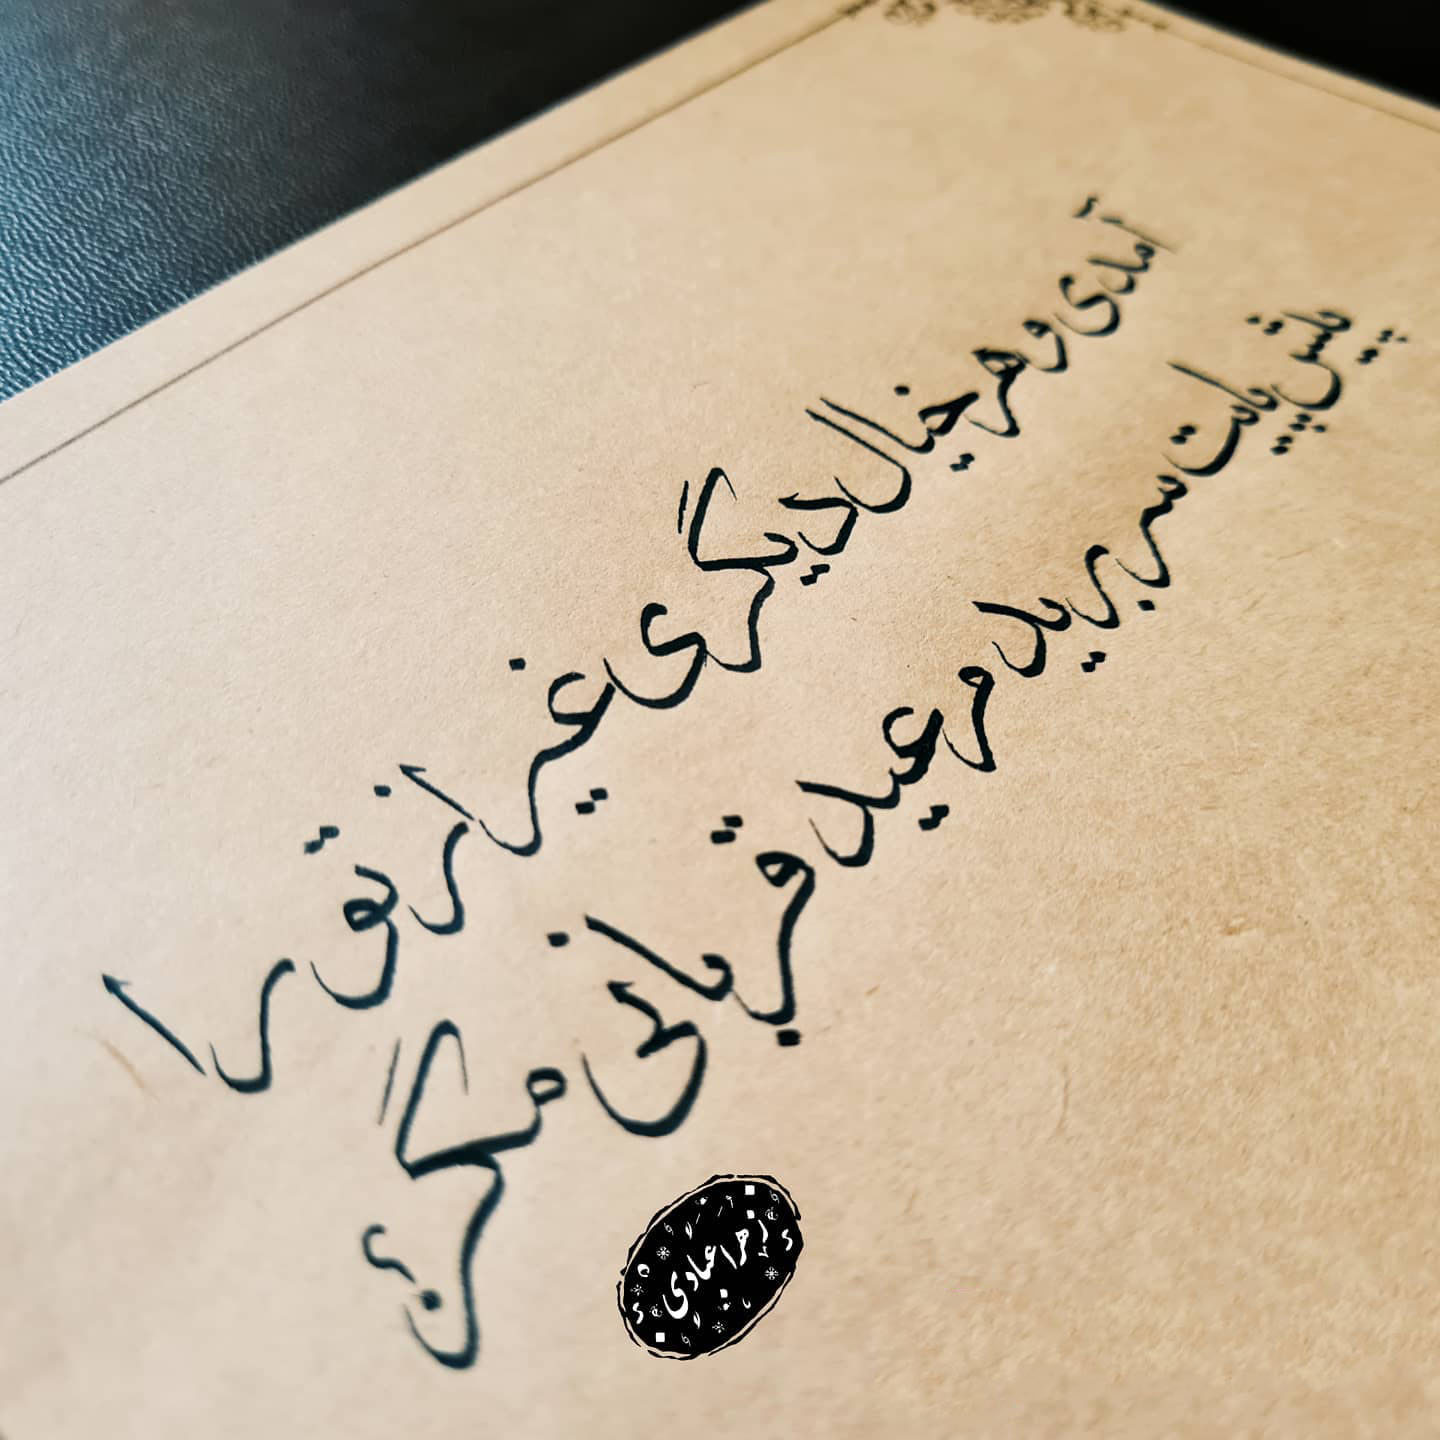 آمدی و هر خیال دیگری غیر از تو را
پیش پایت سر بریدم عید قربانی مگر
زهرا عبادی